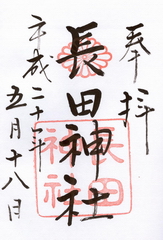 奉拝
長田神社
平成二十年
五月十八日
長田
神社